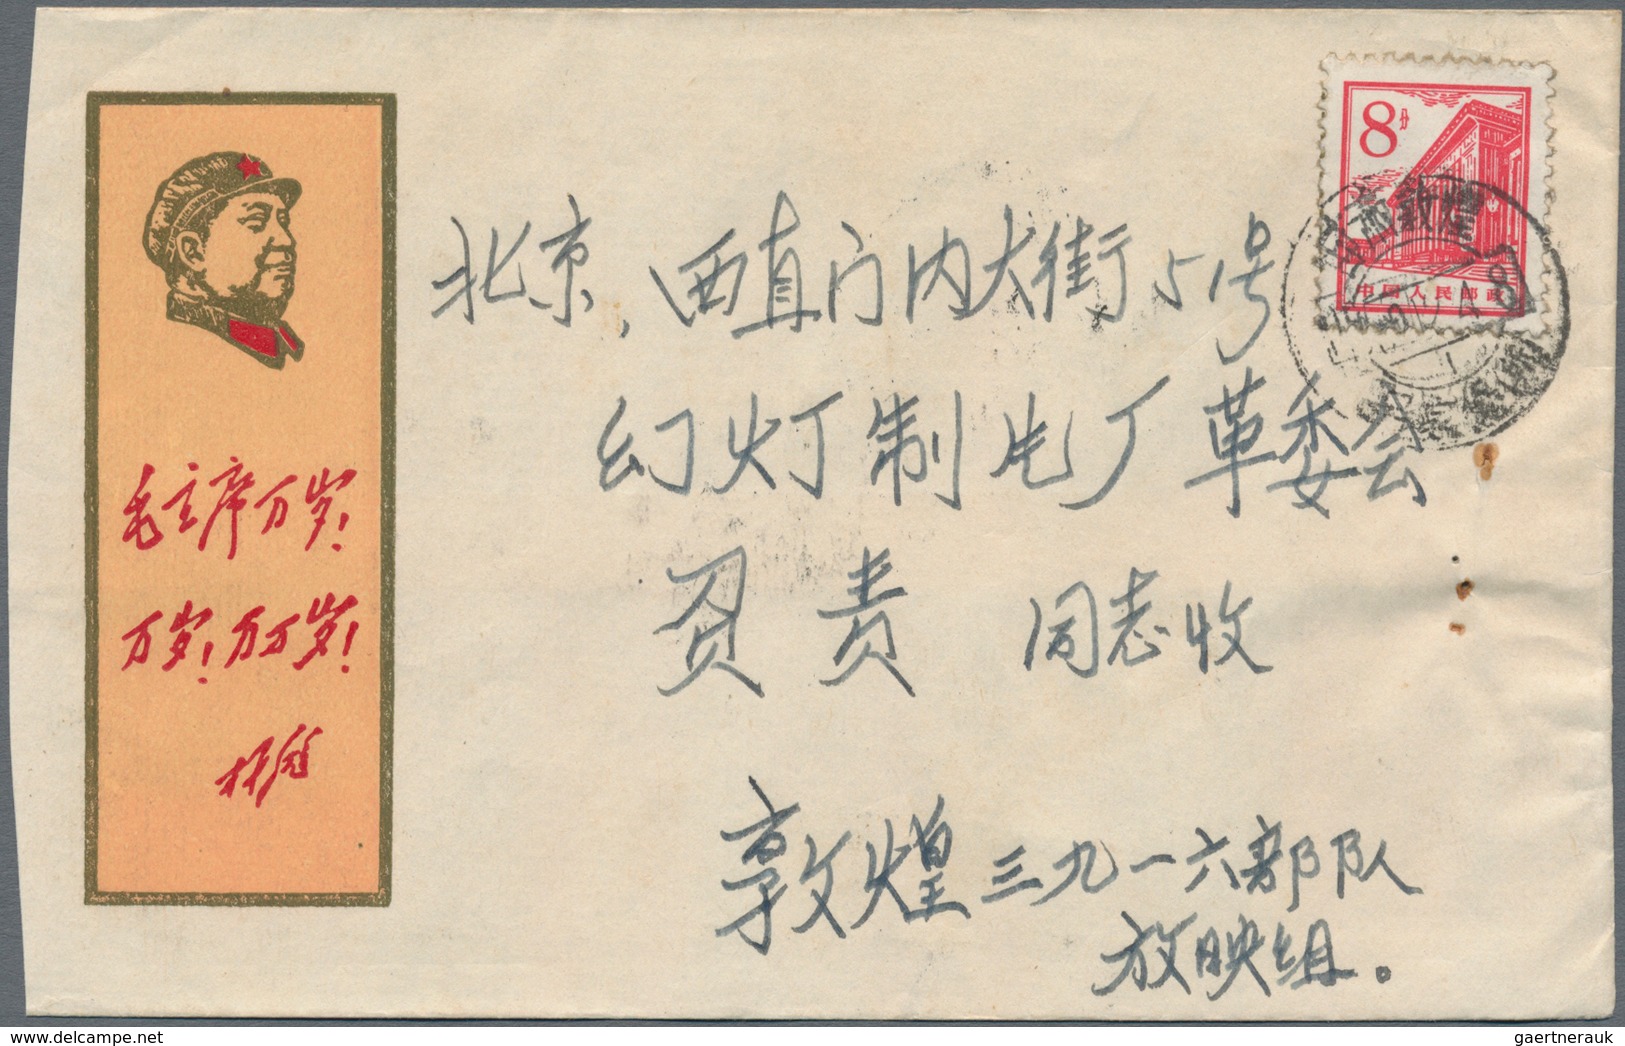 毛主席万岁!
万岁!万万岁!
林彪
8分
中国人民邮政
甘肃敦煌
北京,西直门内大街5号
幻灯制片厂革委会
负责 同志收
敦煌三九一六部队
放映组。
delcampe.net
gaertnerauk